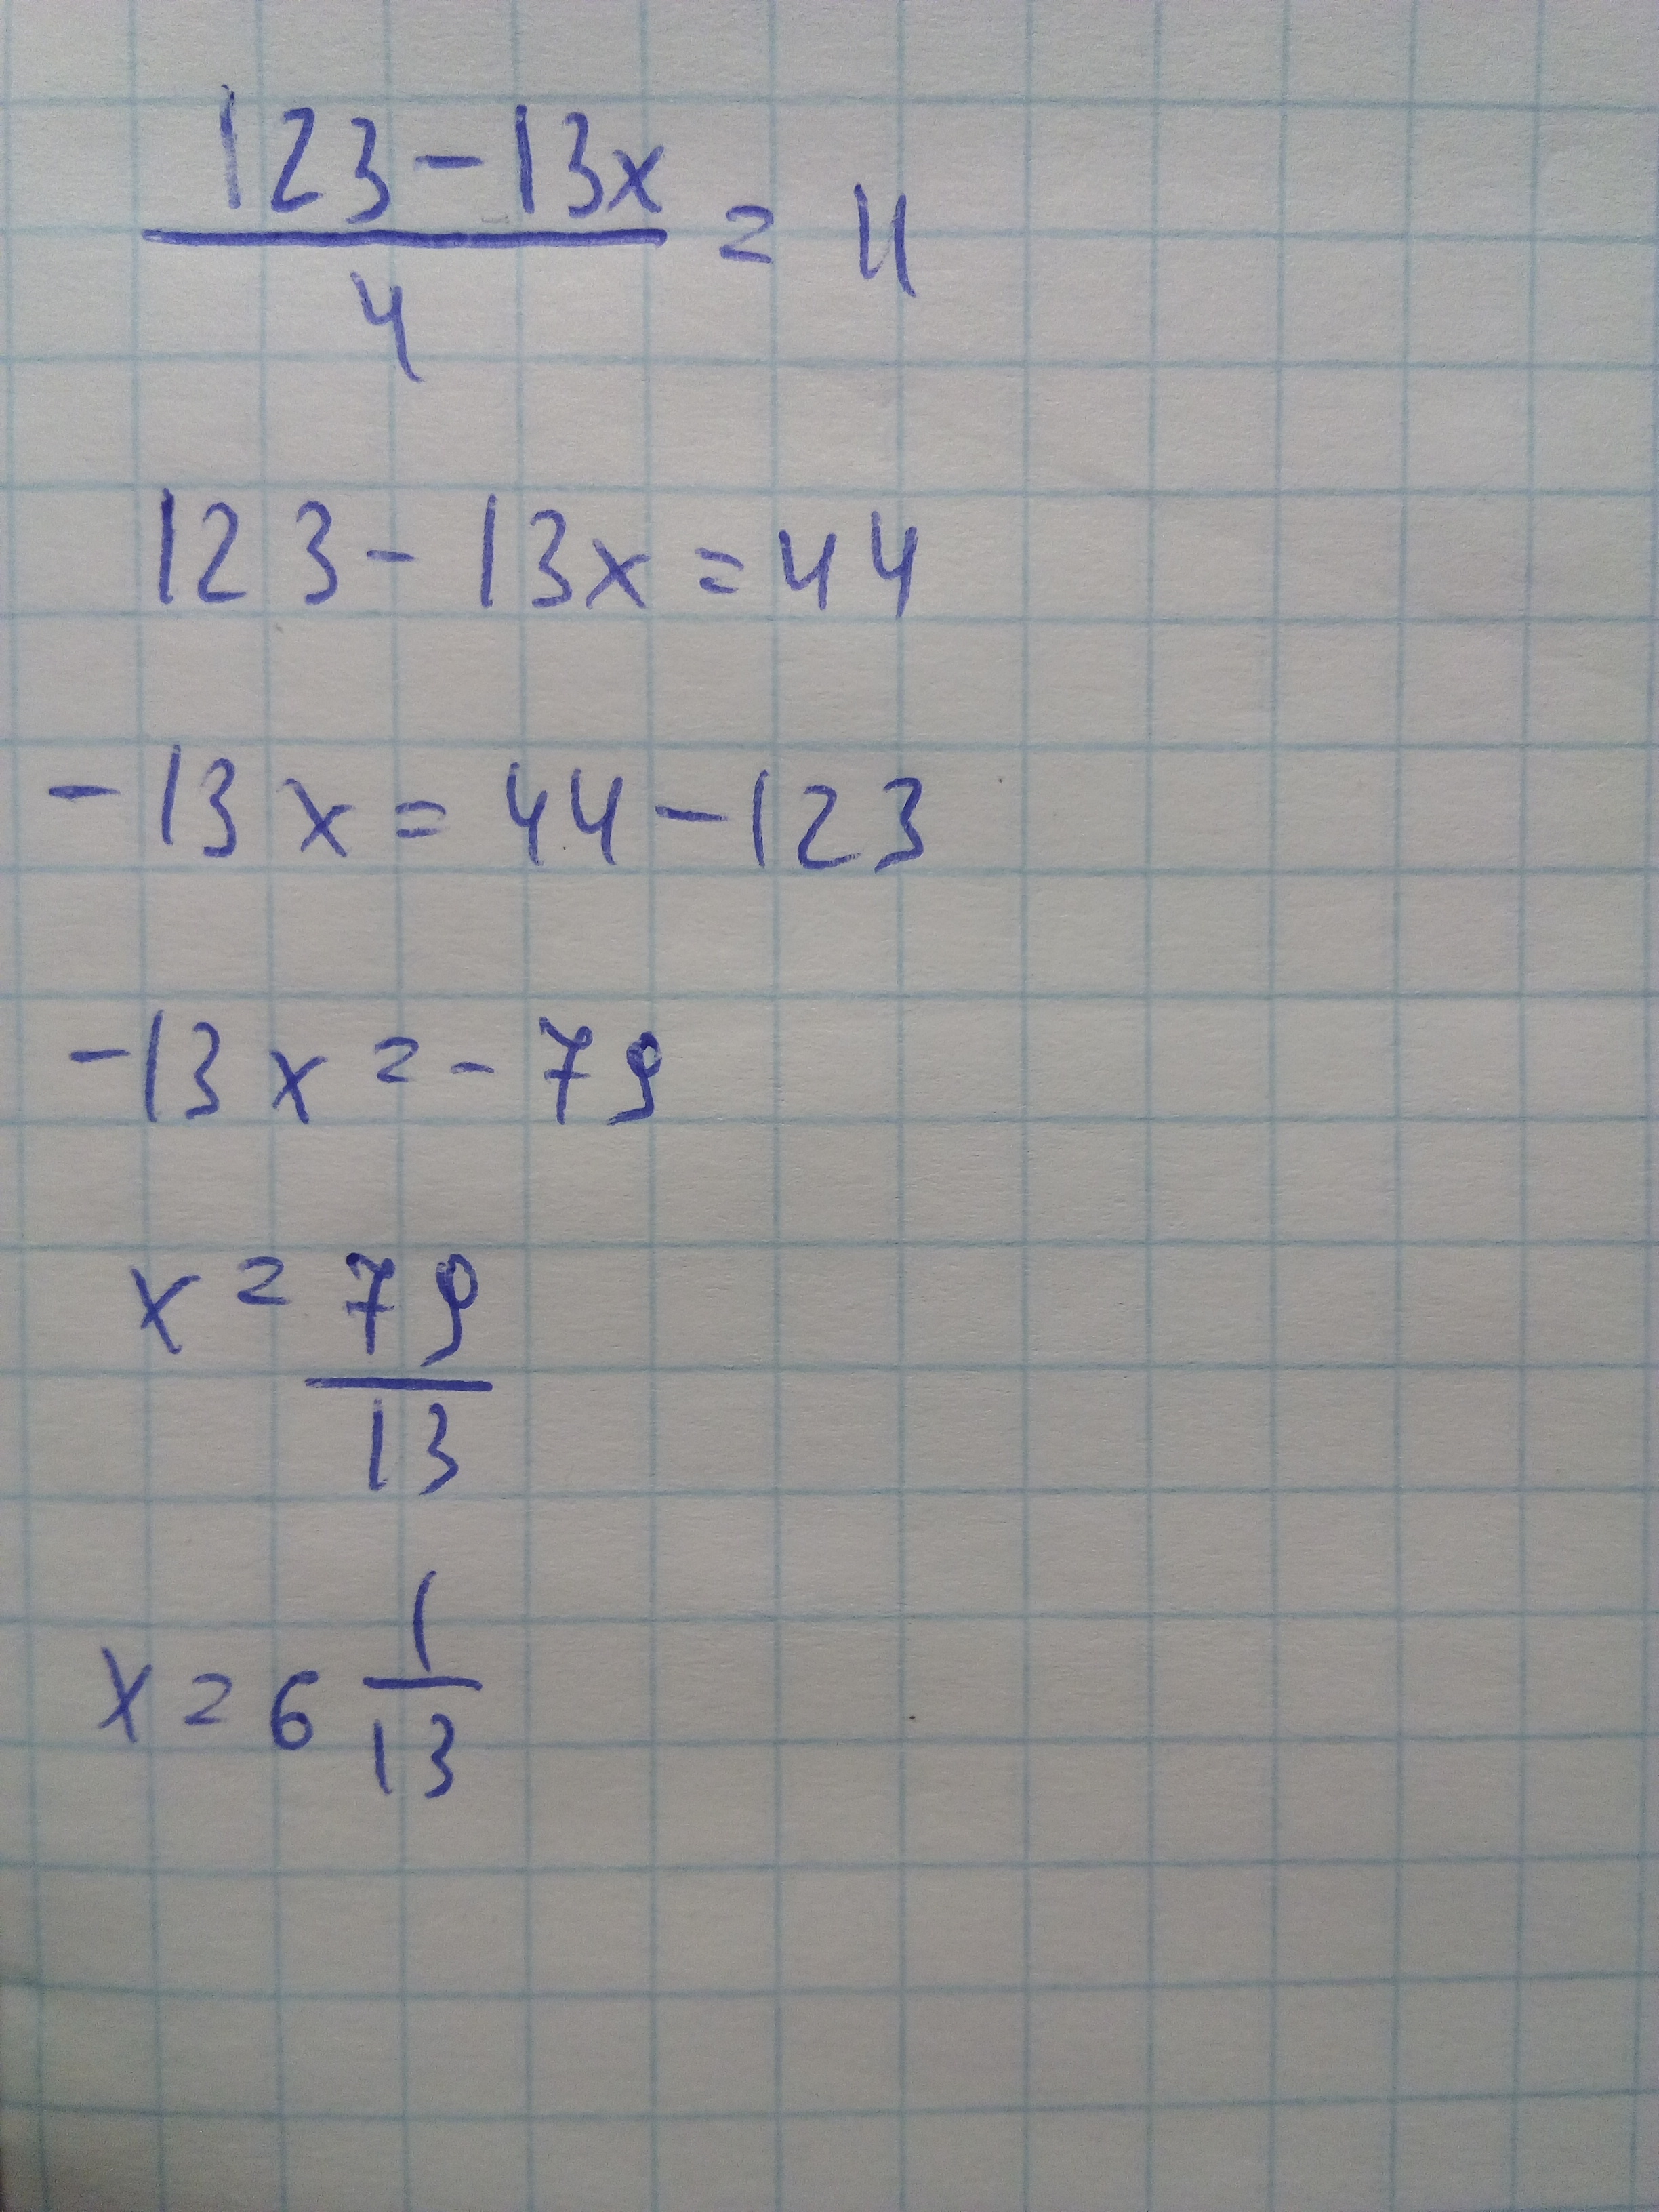 123-13x
4
= 11
123-13x=44
-13x=44-123
-13x=-79
x=79
13
x=6 1
13